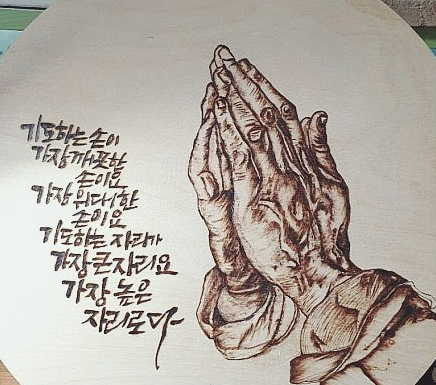 기도하는 손이
가장 깨끗한
손이요
가장 위대한
손이요
기도하는 자리가
가장 큰 자리요
가장 높은
자리로다